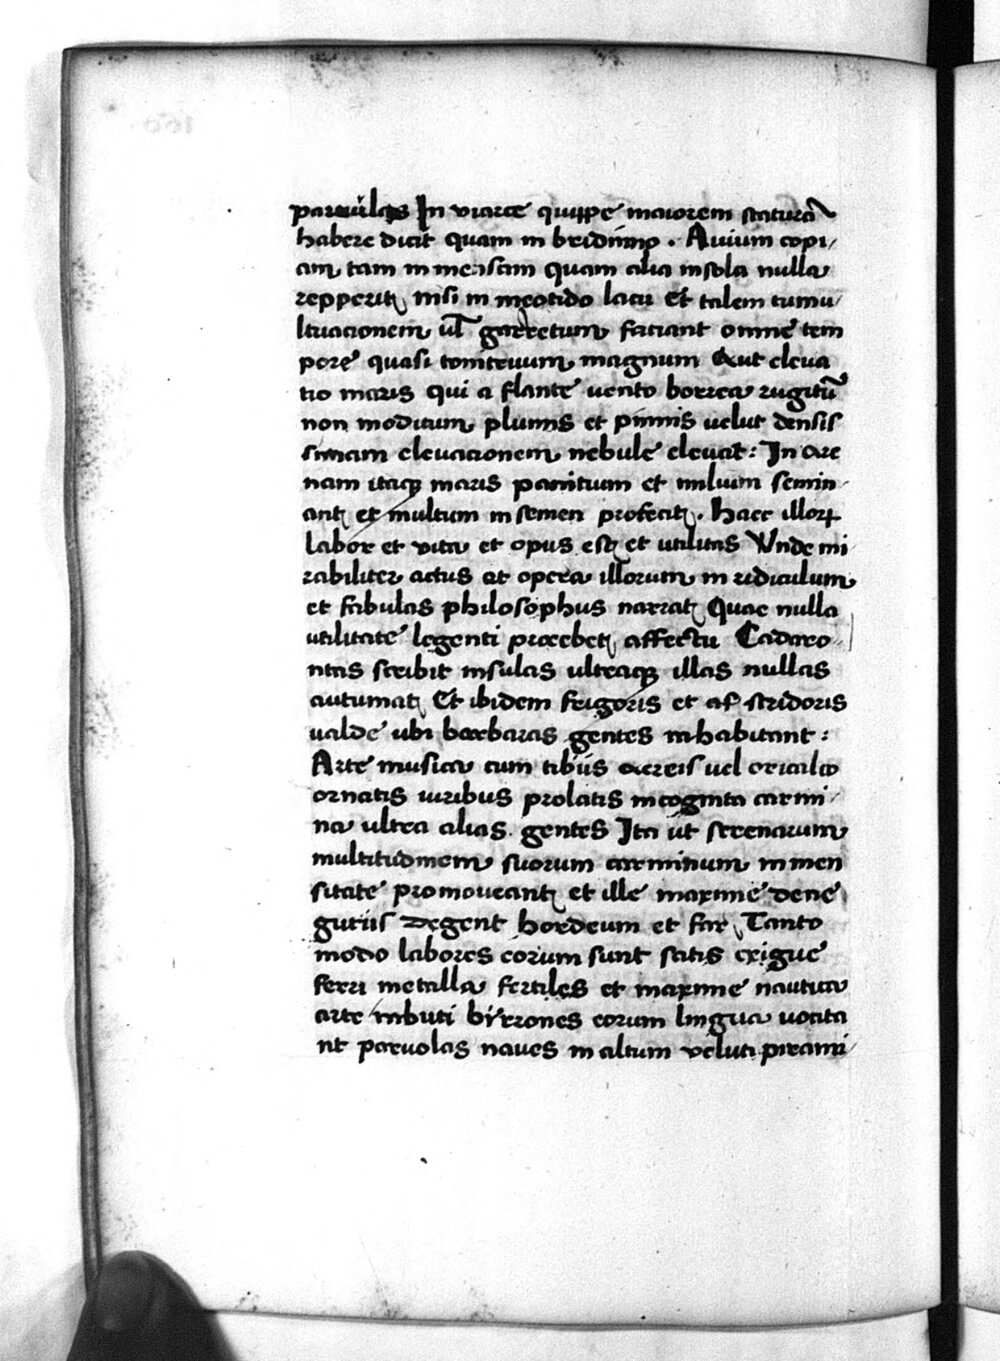 paruulas In viarce quippe maiorem staturā
habere dicit quam in bridinno. Auium copi/
am tam inmensam quam alia insola nulla
repperit nisi in meotido lacu Et talem tumu/
ltuacionem ul garretum faciant omne tem
pore quasi tonitruum magnum Aut eleua
tio maris qui a flante uento borrea rugitū
non modicum plumis et pinnis uelut densis
simam eleuacionem nebule eleuat: In are
nam itaque maris panitium et milium semin
ant et multum in semen profecit. Haec illorum
labor et vita et opus est et utilitas Vnde mi
rabiliter actus et opera illorum in ridiculum
et fabulas philosophus narrat Quae nulla
utilitate legenti praebet affectu Cadaro
ntas scribit insulas ultraque illas nullas
autumat Et ibidem frigoris et af stridoris
ualde ubi barbaras gentes inhabitant:
Arte musica cum tibiis aereis uel oricalco
ornatis uiribus prolatis incognita carmi/
na ultra alias gentes Ita ut serenarum
multitudinem suorum carminum inmen
sitate promoueant et ille maxime dene
gutiis degent hordeum et far Tanto
modo labores eorum sunt satis exigue
ferri metalla fertiles et maxime nautica
arte inbuti birrones eorum lingua uocita
nt paruolas naues in altum veluti pirami/